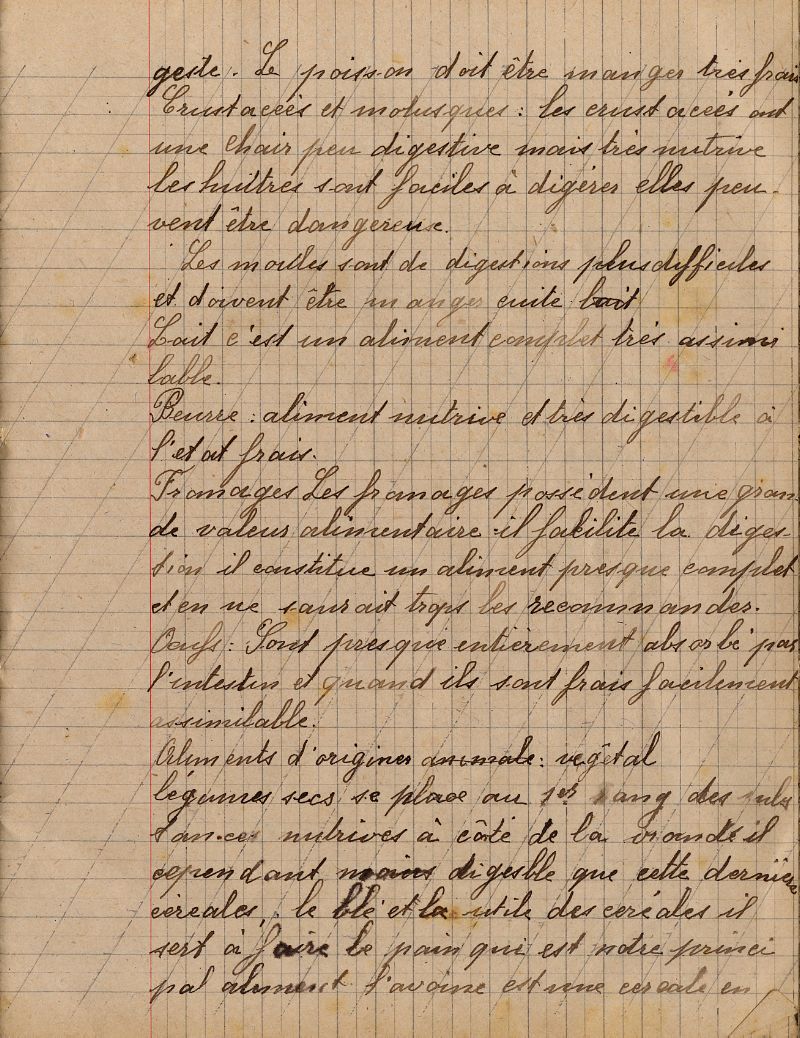 geste. Le poisson doit être manger très frais
Crustaceés et molusques : les crustaceés ont
une chair peu digestive mais très nutrive
les huîtres sont faciles à digérer elles peu-
vent être dangereuse.
Les moules sont de digestions plus difficiles
et doivent être manger cuite lait
Lait c'est un aliment complet très assimi
lable.
Beurre : aliment nutrive et très digestible à
l'etat frais.
Fromages Les fromages possédent une gran-
de valeur alimentaire il facilite la diges-
tion il constitue un aliment presque complet
et en ne saurait trops les recommander.
Oeufs : Sont presque entièrement absorbé par
l'intestin et quand ils sont frais facilement
assimilable.
Aliments d'origines animale : vegêtal
légumes secs se place au 1er rang des subs
tances nutrives à côté de la viande il
cependant moins digesble que cette dernière
céreales : le blé et la utile des ceréales il
sert à faire le pain qui est notre princi
pal aliment l'avoine est une cereale en